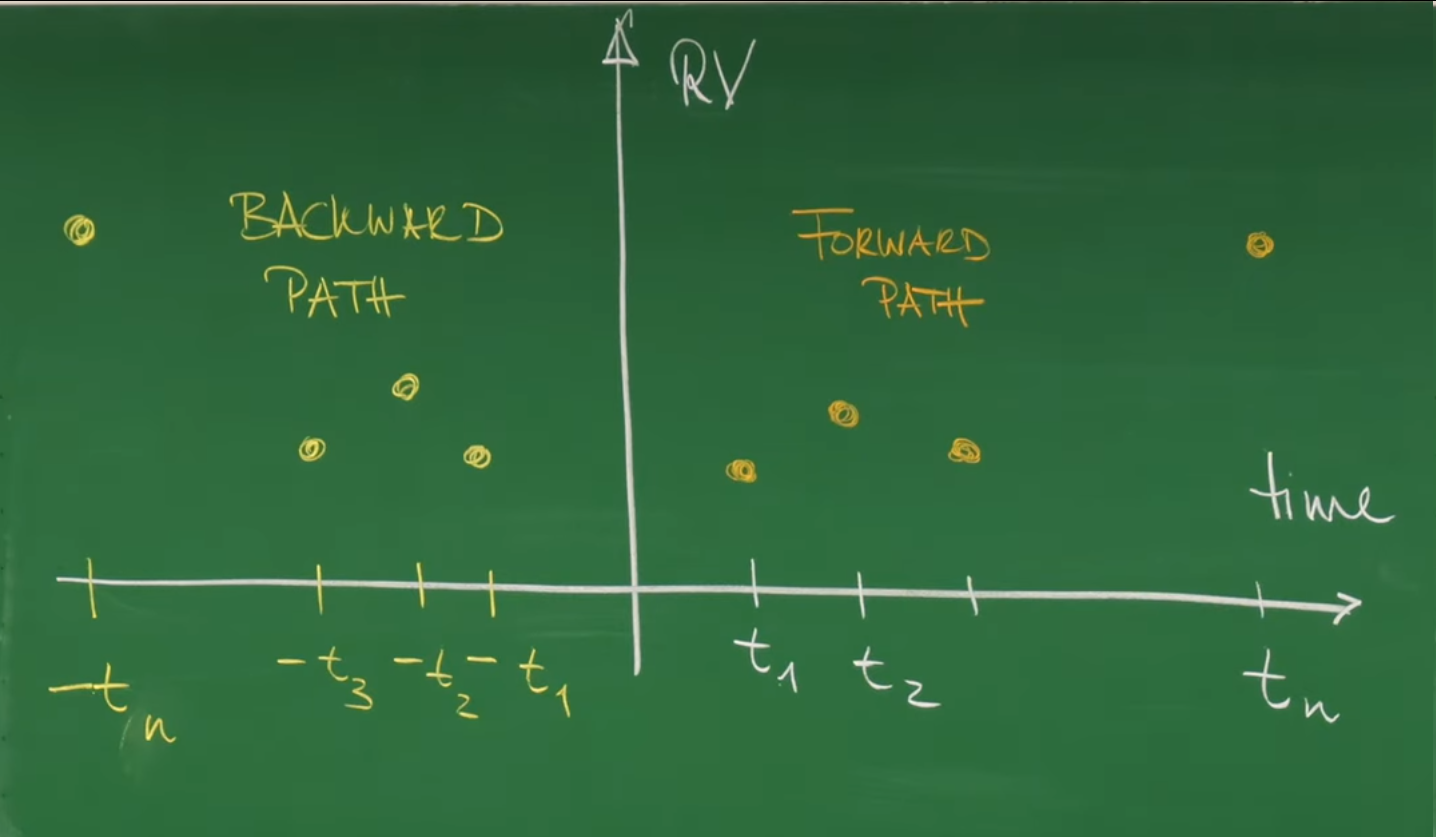 RV
BACKWARD
PATH
FORWARD
PATH
time
-tn -t3 -t2 -t1 t1 t2 tn